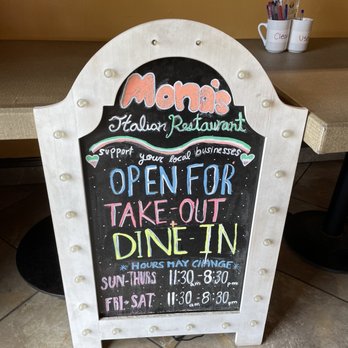 Mona's
Italian Restaurant
support your local businesses
OPEN FOR
TAKE-OUT
+
DINE-IN
*HOURS MAY CHANGE*
SUN-THURS 11:30am-8:30pm
FRI-SAT 11:30am-8:30pm